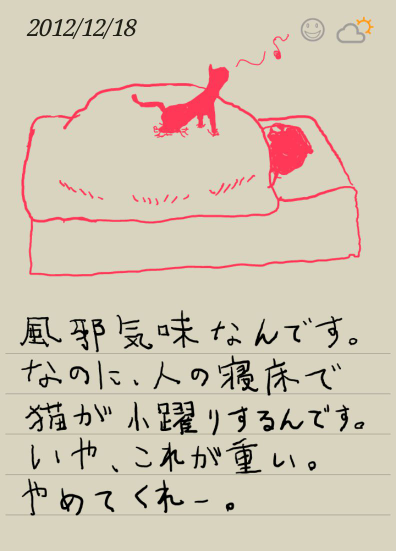 2012/12/18
風邪気味なんです。
なのに、人の寝床で
猫が小躍りするんです。
いや、これが重い。
やめてくれー。